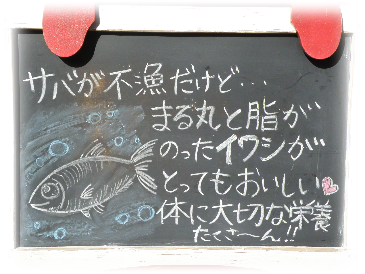 サバが不漁だけど…
まる丸と脂が
のったイワシが
とってもおいしい
体に大切な栄養
たくさ〜ん!!